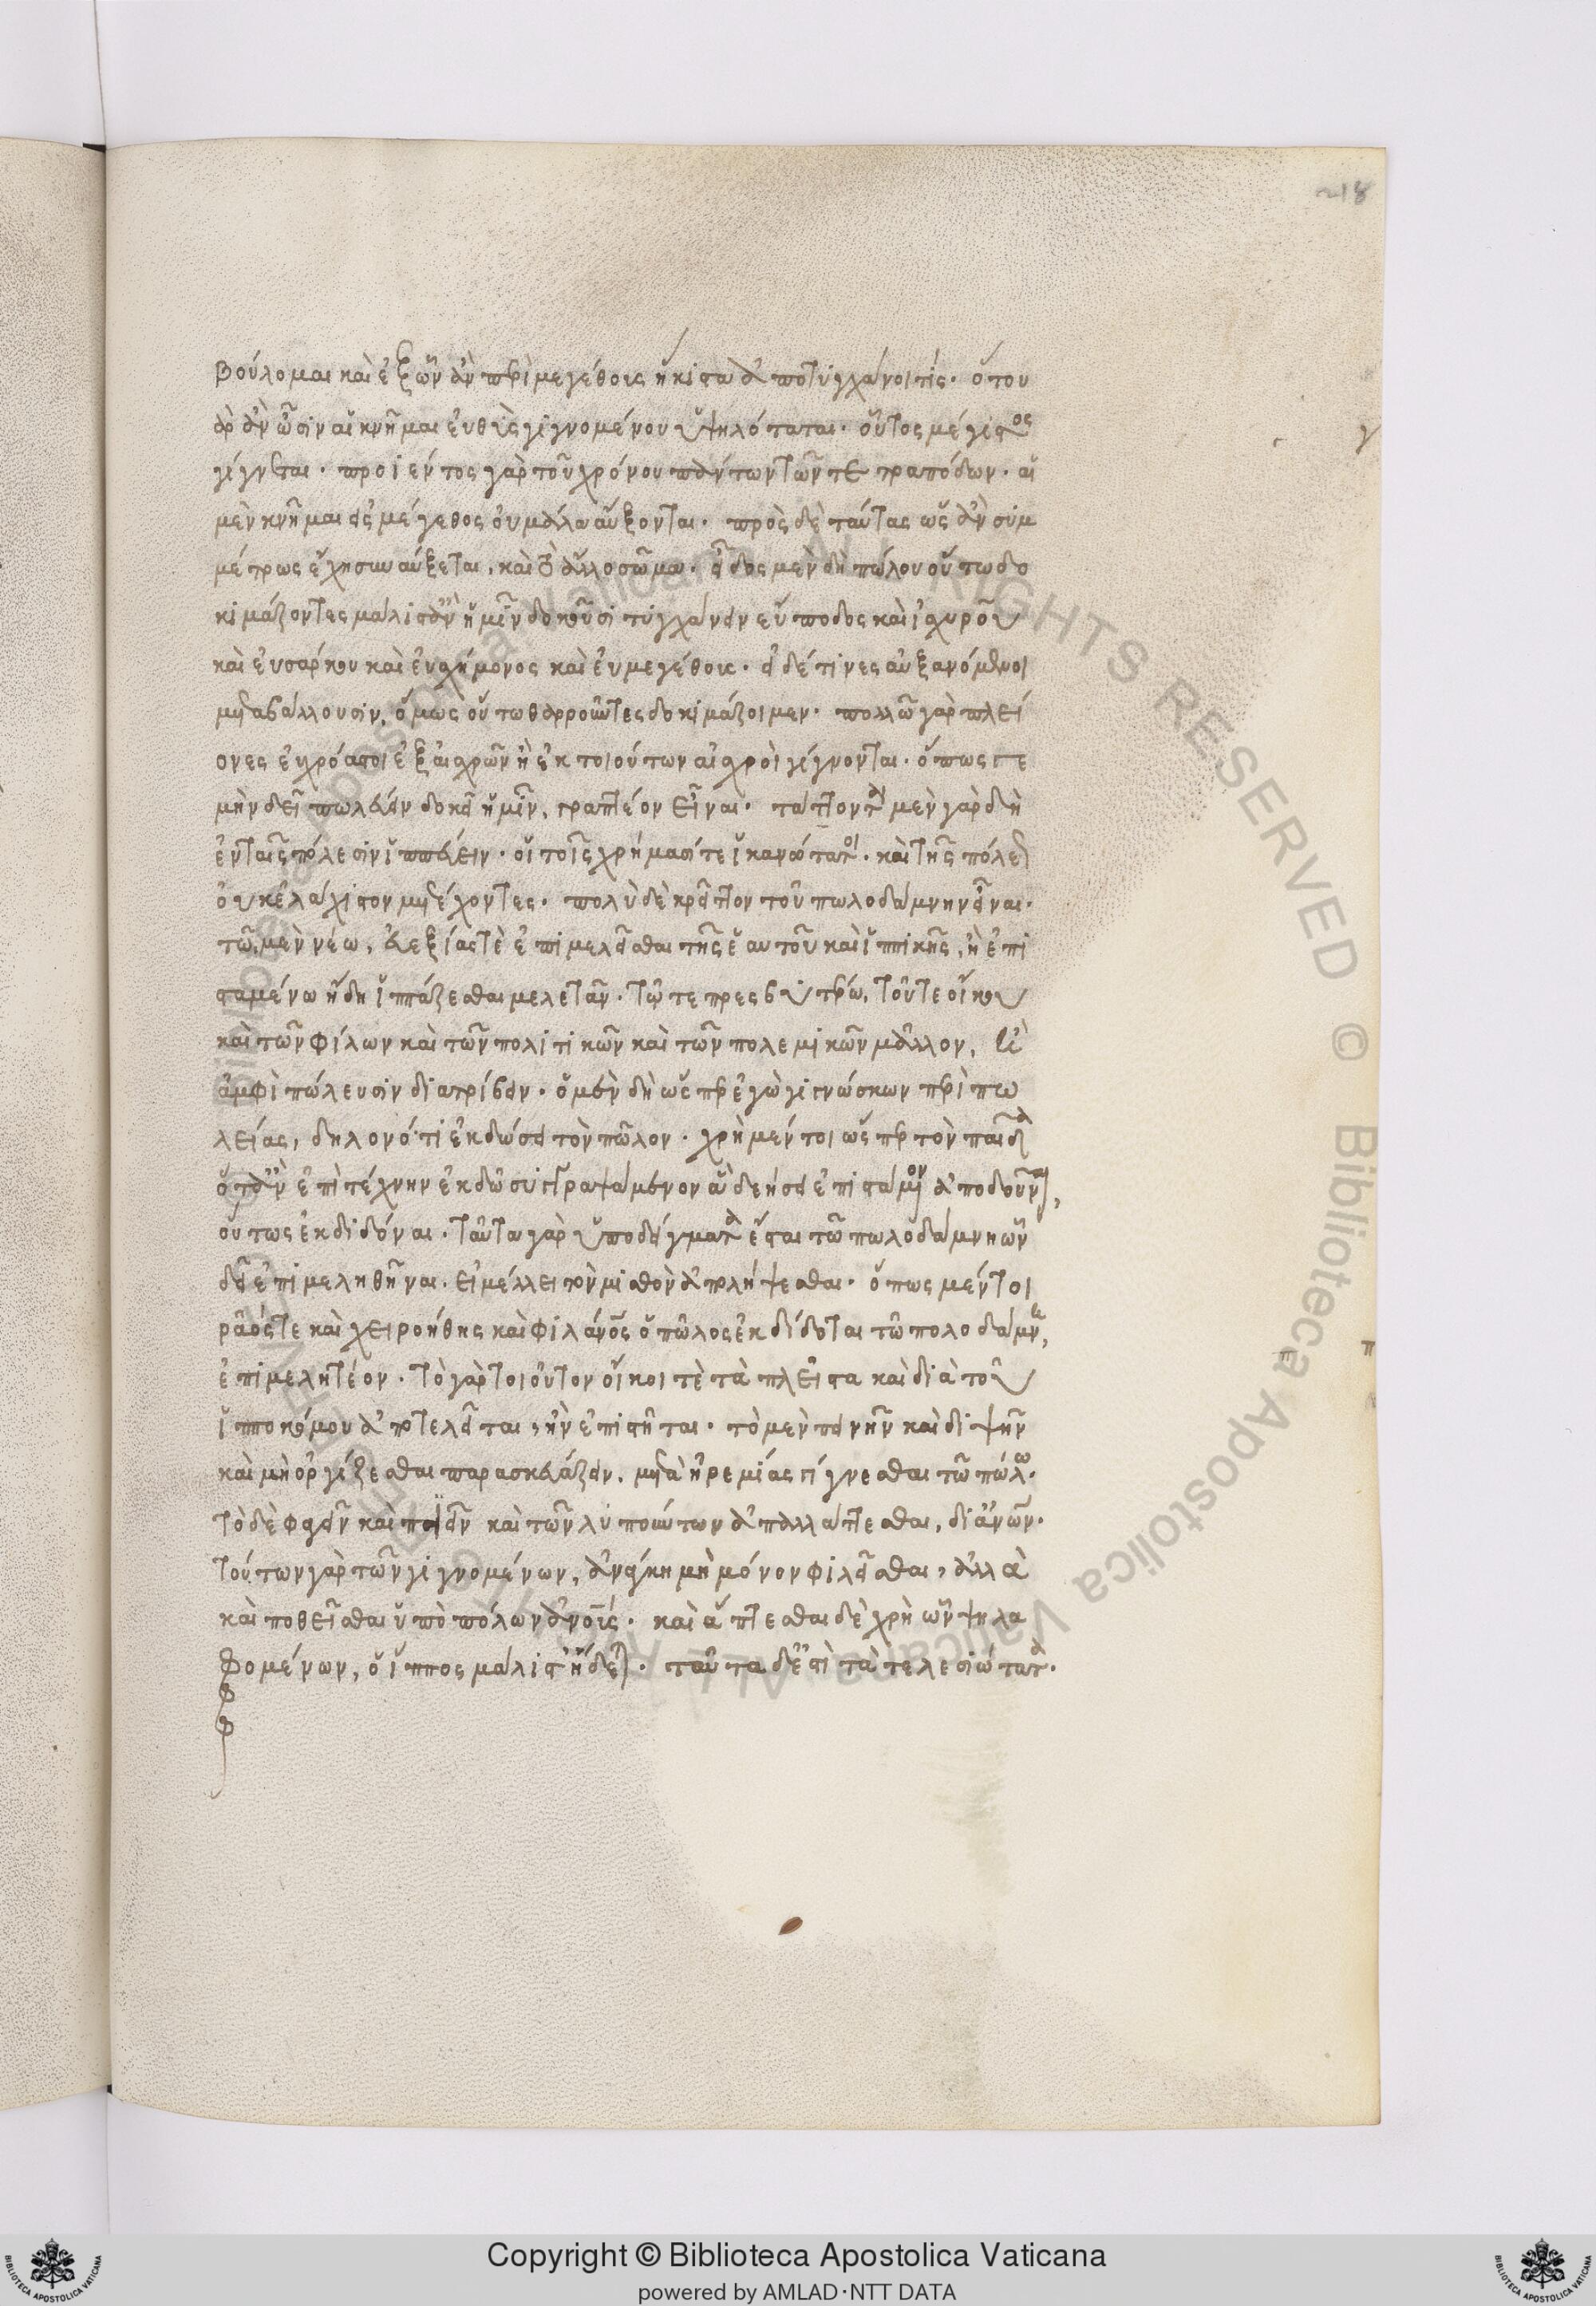 218
βούλομαι καὶ ἐξ ὧν ἂν περὶ μεγέθους ἥκιστα ἀποτυγχάνοι τίς· ὅτου
ἂρ ἂν ὦσιν αἱ κνῆμαι εὐθὺς γιγνομένου ὑψηλόταται· οὗτος μέγιστος
γίγνεται· προϊέντος γὰρ τοῦ χρόνου πάντων τῶν τετραπόδων· αἱ
μὲν κνῆμαι εἰς μέγεθος οὐ μάλα αὔξονται· πρὸς δὲ ταύτας ὡς ἂν συμ
μέτρως ἔχῃ συναύξεται, καὶ τὸ ἄλλο σῶμα· εἶδος μὲν δὴ πώλου οὕτω δο
κιμάζοντες μάλιστ' ἂν ἡμῖν δοκοῦσι τυγχάνειν εὔποδος καὶ ἰσχυροῦ
καὶ εὐσάρκου καὶ εὐσχήμονος καὶ εὐμεγέθους· εἰ δέ τινες αὐξανόμενοι
μεταβάλλουσιν, ὅμως οὕτω θαρροῦντες δοκιμάζοιμεν· πολλῷ γὰρ πλεί
ονες εὔχρηστοι ἐξ αἰσχρῶν ἢ ἐκ τοιούτων αἰσχροὶ γίγνονται· ὅπως γε
μὴν δεῖ πωλεύειν δοκεῖ ἡμῖν, γραπτέον εἶναι· τάττονται μὲν γὰρ δὴ
ἐν ταῖς πόλεσιν ἱππεύειν· οἱ τοῖς χρήμασί τε ἱκανώτατοι· καὶ τῆς πόλεως
οὐκ ἐλάχιστον μετέχοντες· πολὺ δὲ κρεῖττον τοῦ πωλοδάμνην εἶναι·
τῷ μὲν νέῳ, εὐεξίας τὲ ἐπιμελεῖσθαι τῆς ἑαυτοῦ καὶ ἱππικῆς, ἢ ἐπι
σταμένῳ ἤδη ἱππάζεσθαι μελετᾶν· τῷ τε πρεσβυτέρῳ, τοῦ τε οἴκου
καὶ τῶν φίλων καὶ τῶν πολιτικῶν καὶ τῶν πολεμικῶν μᾶλλον, ἢ
ἀμφὶ πώλευσιν διατρίβειν· ὁ μὲν δὴ ὥσπερ ἐγὼ γιγνώσκων περὶ πω
λείας, δηλονότι ἐκδώσει τὸν πῶλον· χρὴ μέντοι ὥσπερ τὸν παῖδα
ὅταν ἐπὶ τέχνην ἐκδῷ συγγραψάμενον ἃ δεήσει ἐπιστάμενον ἀποδοῦναι,
οὕτως ἐκδιδόναι· ταῦτα γὰρ ὑποδείγματα ἔσται τῷ πωλοδάμνῃ ὧν
δεῖ ἐπιμεληθῆναι, εἰ μέλλει τὸν μισθὸν ἀπολήψεσθαι· ὅπως μέντοι
πρᾶός τε καὶ χειροήθης καὶ φιλάνος ὁ πῶλος ἐκδίδοται τῷ πολοδάμνῃ,
ἐπιμελητέον· τὸ γὰρ τοιοῦτον οἴκοι τὲ τὰ πλεῖστα καὶ διὰ τοῦ
ἱπποκόμου ἀποτελεῖται, ἢν ἐπίστηται· τὸ μὲν πεινῆν καὶ διψῆν
καὶ μυοργίζεσθαι παρασκευάζειν, μετὰ ἠρεμίας γίγνεσθαι τῷ πώλῳ·
τὸ δὲ φαγεῖν καὶ πιεῖν καὶ τῶν λυπούντων ἀπαλλάττεσθαι, δι' ἀνῶν·
τούτων γὰρ τῶν γιγνομένων, ἀνάγκη μὴ μόνον φιλεῖσθαι, ἀλλὰ
καὶ ποθεῖσθαι ὑπὸ πόλων ἀνοῖς· καὶ ἅπτεσθαι δὲ χρὴ ὧν ψηλα
φομένων, ὁ ἵππος μάλιστ' ἥδεται· ταῦτα δ' ἐστὶ τὰ τελεσιώτατα·